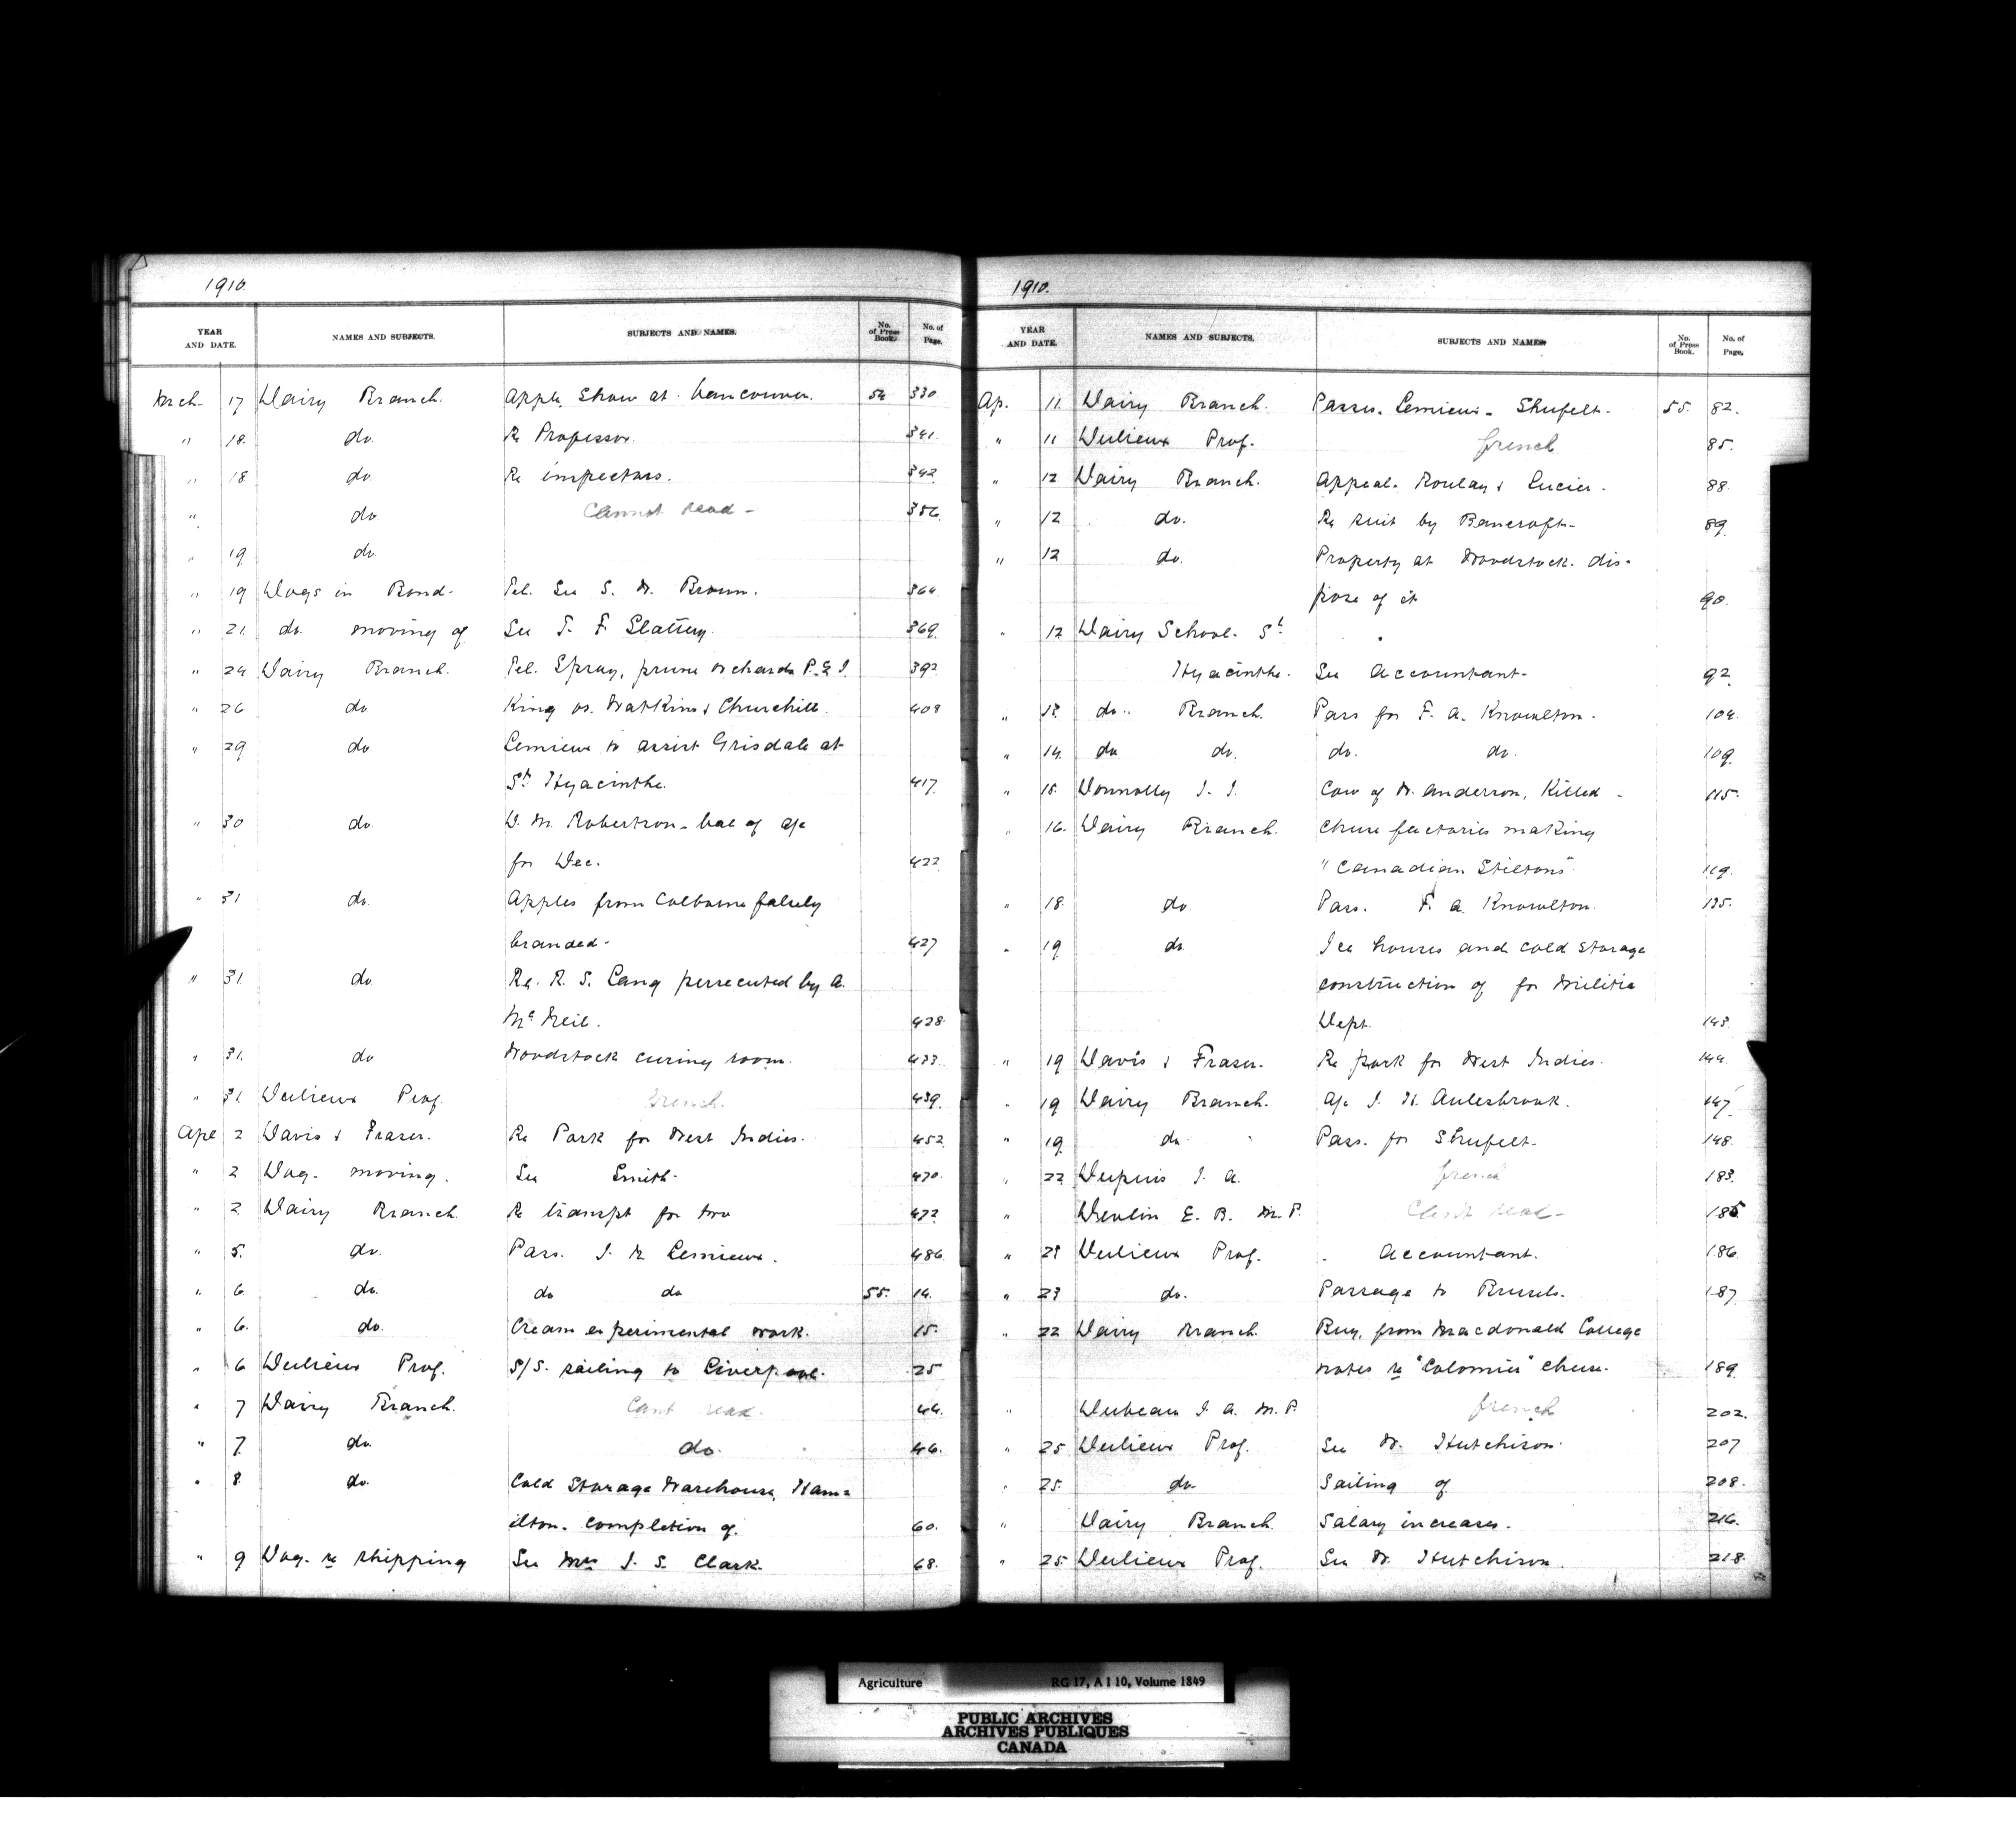 1910.
YEAR AND DATE. NAMES AND SUBJECTS. SUBJECTS AND NAMES. No. of Press Book. No. of Page.
Mch 17 Dairy Branch. Apple Show at Vancouver. 54 330
" 18. do. Re Professor. 341.
" 18 do Re inspectors. 342
" do Cannot read - 356
" 19 do.
" 19 Dogs in Bond- Tel. See S. W. Brown. 364
" 21. do. moving of See T. F. Slattery. 369.
" 24 Dairy Branch. Tel. Spray, prune orchards P.E.I. 392
" 26 do King vs. Watkins & Churchill. 408
" 29 do Lemieux to assist Grisdale at
St Hyacinthe. 417
" 30 do. D. M. Robertson - bal of a/c
for Dec. 422
" 31 do. Apples from Colborne falsely
branded- 427
" 31. do. Re. R. S. Lang persecuted by A.
Mc Neil. 428.
" 31. do Woodstock curing room. 433.
" 31. Deulieux Prof. french. 439.
Apl 2 Davis & Fraser. Re Pork for West Indies. 452
" 2 Dog- moving. See Smith- 470.
" 2 Dairy Branch. Re transpt for two 472
" 5. do. Pass. J. N. Lemieux. 486
" 6 do. do do 55. 14.
" 6. do. Cream experimental work. 15.
" 6 Deulieux Prof. S/S. sailing to Liverpool. 25
" 7 Dairy Branch. Cant read. 44.
" 7. do. do. 46.
" 8. do. Cold Storage Warehouse, Ham=
ilton. completion of. 60.
" 9 Dog- re shipping See Mrs J. S. Clark. 68.
1910.
YEAR AND DATE. NAMES AND SUBJECTS. SUBJECTS AND NAMES No. of Press Book. No. of Page.
Ap. 11. Dairy Branch. Passes. Lemieux - Shufelt- 55. 82.
" 11 Deulieux Prof. french 85.
" 12 Dairy Branch. Appeal. Roulay & Lucier. 88.
" 12 do. Re suit by Bancroft- 89.
" 12 do. Property at Woodstock. dis-
pose of it 90.
" 12 Dairy School- St
Hyacinthe. See Accountant- 92
" 13. do.. Branch. Pass for F. A. Knowlton. 104.
" 14. do do. do. do. 109.
" 15. Donnolly J. J. Cow of W. Anderson, Killed - 115.
" 16. Dairy Branch. Cheese factories making
"Canadian Stiltons" 119.
" 18. do Pass. F. A. Knowlton. 135.
" 19 do. Ice houses and cold storage
construction of for Militia
Dept. 143
" 19 Davis & Fraser. Re pork for West Indies. 144.
" 19 Dairy Branch. A/c J. H. Aulesbrook. 147.
" 19. do Pass. for Shufelt- 148.
" 22 Dupuis J. A. french 183.
" Devlin E. B. M.P. Can't read- 185
" 23 Deulieux Prof. Accountant. 186.
" 23 do. Passage to Brussels. 187
" 22 Dairy Branch Buy, from Macdonald College
notes re "Colomier" cheese. 189.
" Dubeau J. A. M.P. french 202.
" 25 Deulieux Prof. See W. Hutchison. 207
" 25. do Sailing of 208.
" Dairy Branch. Salary increases. 216.
" 25 Deulieux Prof. See W. Hutchison. 218.
Agriculture RG 17, A I 10, Volume 1849
PUBLIC ARCHIVES
ARCHIVES PUBLIQUES
CANADA